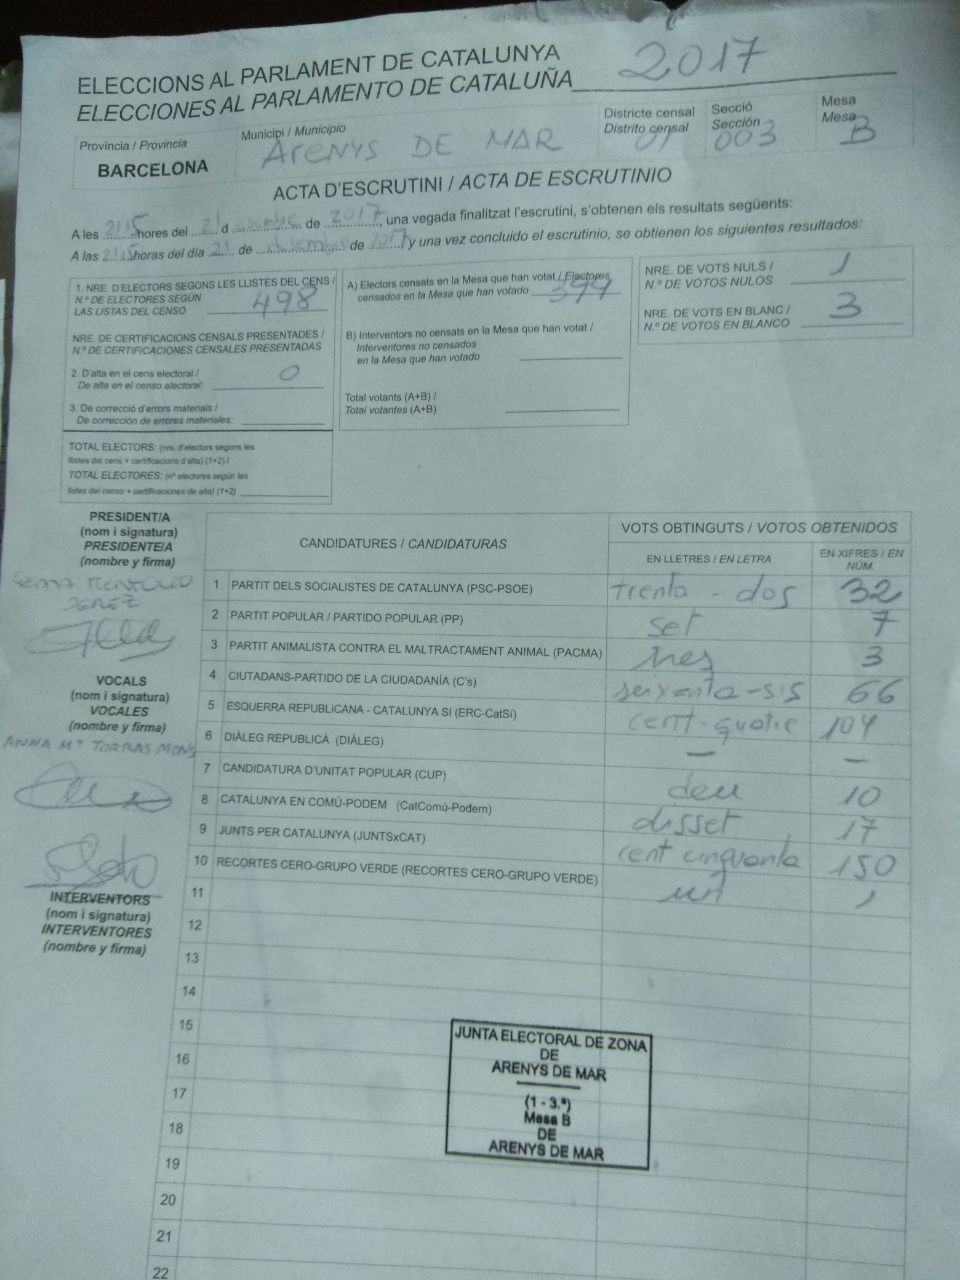 2017
ELECCIONS AL PARLAMENT DE CATALUNYA
ELECCIONES AL PARLAMENTO DE CATALUÑA
Província / Provincia
BARCELONA
Municipi / Municipio
ARENYS DE MAR
Districte censal
Distrito censal
01
Secció
Sección
003
Mesa
Mesa
B
ACTA D'ESCRUTINI / ACTA DE ESCRUTINIO
A les 21:15 hores del 21 d de 2017, una vegada finalitzat l'escrutini, s'obtenen els resultats següents:
A las 21:15 horas del día 21 de diciembre de 2017 y una vez concluido el escrutinio, se obtienen los siguientes resultados:
1. NRE. D'ELECTORS SEGONS LES LLISTES DEL CENS /
N.º DE ELECTORES SEGÚN
LAS LISTAS DEL CENSO 498
NRE. DE CERTIFICACIONS CENSALS PRESENTADES /
N.º DE CERTIFICACIONES CENSALES PRESENTADAS
2. D'alta en el cens electoral /
De alta en el censo electoral: 0
3. De correcció d'errors materials /
De corrección de errores materiales:
TOTAL ELECTORS: (nre. d'electors segons les
llistes del cens + certificacions d'alta) (1+2) /
TOTAL ELECTORES: (nº electores según las
listas del censo + certificaciones de alta) (1+2)
A) Electors censats en la Mesa que han votat / Electores
censados en la Mesa que han votado 394
B) Interventors no censats en la Mesa que han votat /
Interventores no censados
en la Mesa que han votado
Total votants (A+B) /
Total votantes (A+B)
NRE. DE VOTS NULS /
N.º DE VOTOS NULOS 1
NRE. DE VOTS EN BLANC /
N.º DE VOTOS EN BLANCO 3
PRESIDENT/A
(nom i signatura)
PRESIDENTE/A
(nombre y firma)
VOCALS
(nom i signatura)
VOCALES
(nombre y firma)
ANNA Mª TORRAS MONS
INTERVENTORS
(nom i signatura)
INTERVENTORES
(nombre y firma)
CANDIDATURES / CANDIDATURAS
VOTS OBTINGUTS / VOTOS OBTENIDOS
EN LLETRES / EN LETRA
EN XIFRES / EN NÚM.
1 PARTIT DELS SOCIALISTES DE CATALUNYA (PSC-PSOE) trenta-dos 32
2 PARTIT POPULAR / PARTIDO POPULAR (PP) set 7
3 PARTIT ANIMALISTA CONTRA EL MALTRACTAMENT ANIMAL (PACMA) tres 3
4 CIUTADANS-PARTIDO DE LA CIUDADANÍA (C's) seixanta-sis 66
5 ESQUERRA REPUBLICANA - CATALUNYA SÍ (ERC-CatSí) cent-quatre 104
6 DIÀLEG REPUBLICÀ (DIÀLEG) — —
7 CANDIDATURA D'UNITAT POPULAR (CUP) deu 10
8 CATALUNYA EN COMÚ-PODEM (CatComú-Podem) disset 17
9 JUNTS PER CATALUNYA (JUNTSxCAT) cent cinquanta 150
10 RECORTES CERO-GRUPO VERDE (RECORTES CERO-GRUPO VERDE) un 1
11
12
13
14
15
16
17
18
19
20
21
22
JUNTA ELECTORAL DE ZONA
DE
ARENYS DE MAR
(1 - 3.ª)
Mesa B
DE
ARENYS DE MAR